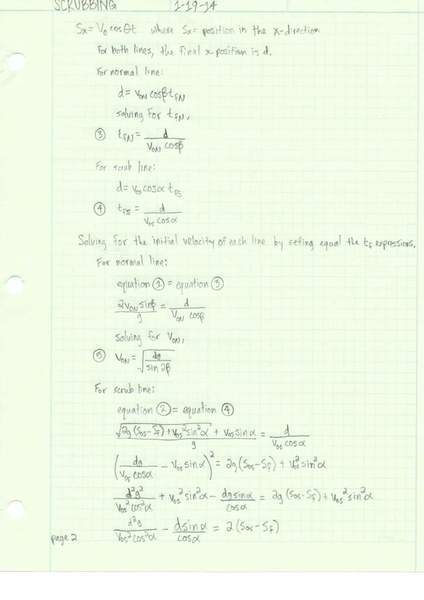 SCRUBBING 1-19-14
Sx = V₀ cosθt where Sx = position in the x-direction
For both lines, the final x-position is d.
For normal line:
d = V₀N cosβ t_FN
solving for t_FN,
③ t_FN = d / (V₀N cosβ)
For scrub line:
d = V₀s cosα t_FS
④ t_FS = d / (V₀s cosα)
Solving for the initial velocity of each line by setting equal the t_f expressions.
For normal line:
equation ① = equation ③
2V₀N sinβ / g = d / (V₀N cosβ)
solving for V₀N,
⑤ V₀N = √(dg / sin 2β)
For scrub line:
equation ② = equation ④
(√(2g(S₀s-S_f)+V₀s² sin²α) + V₀s sinα) / g = d / (V₀s cosα)
(dg / (V₀s cosα) - V₀s sinα)² = 2g(S₀s-S_f) + V₀s² sin²α
d²g² / (V₀s² cos²α) + V₀s² sin²α - dg sinα / cosα = 2g(S₀s-S_f) + V₀s² sin²α
d²g / (V₀s² cos²α) - d sinα / cosα = 2(S₀s-S_f)
page 2